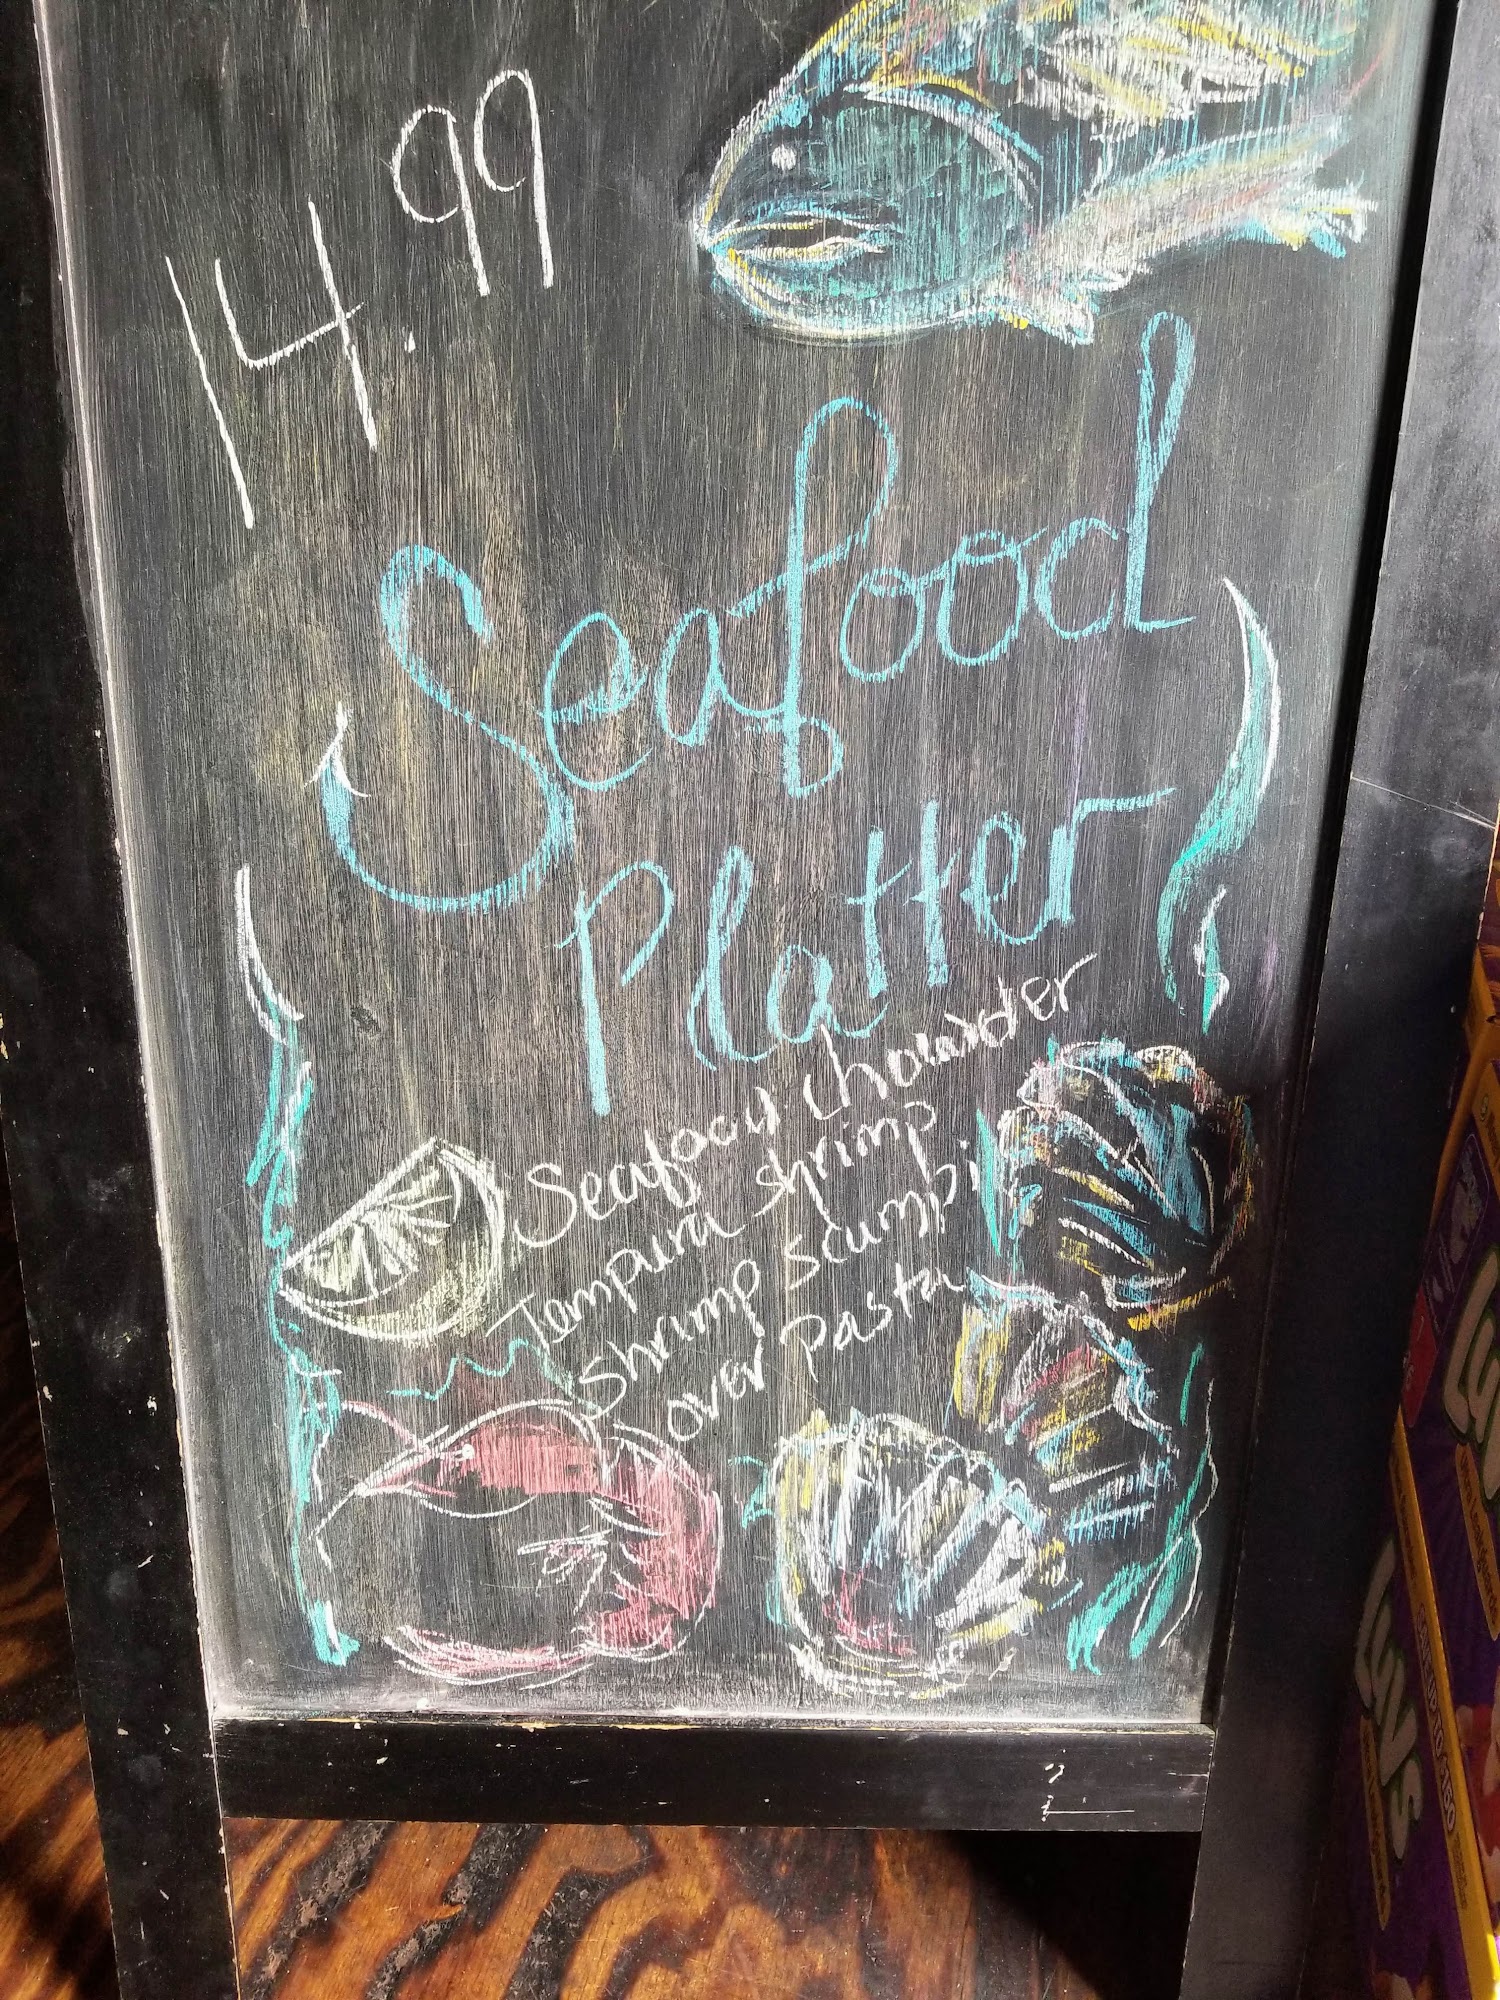 14.99
Seafood
Platter
Seafood chowder
Tempura shrimp
shrimp scumpi
over pasta
Lay's
Lay's